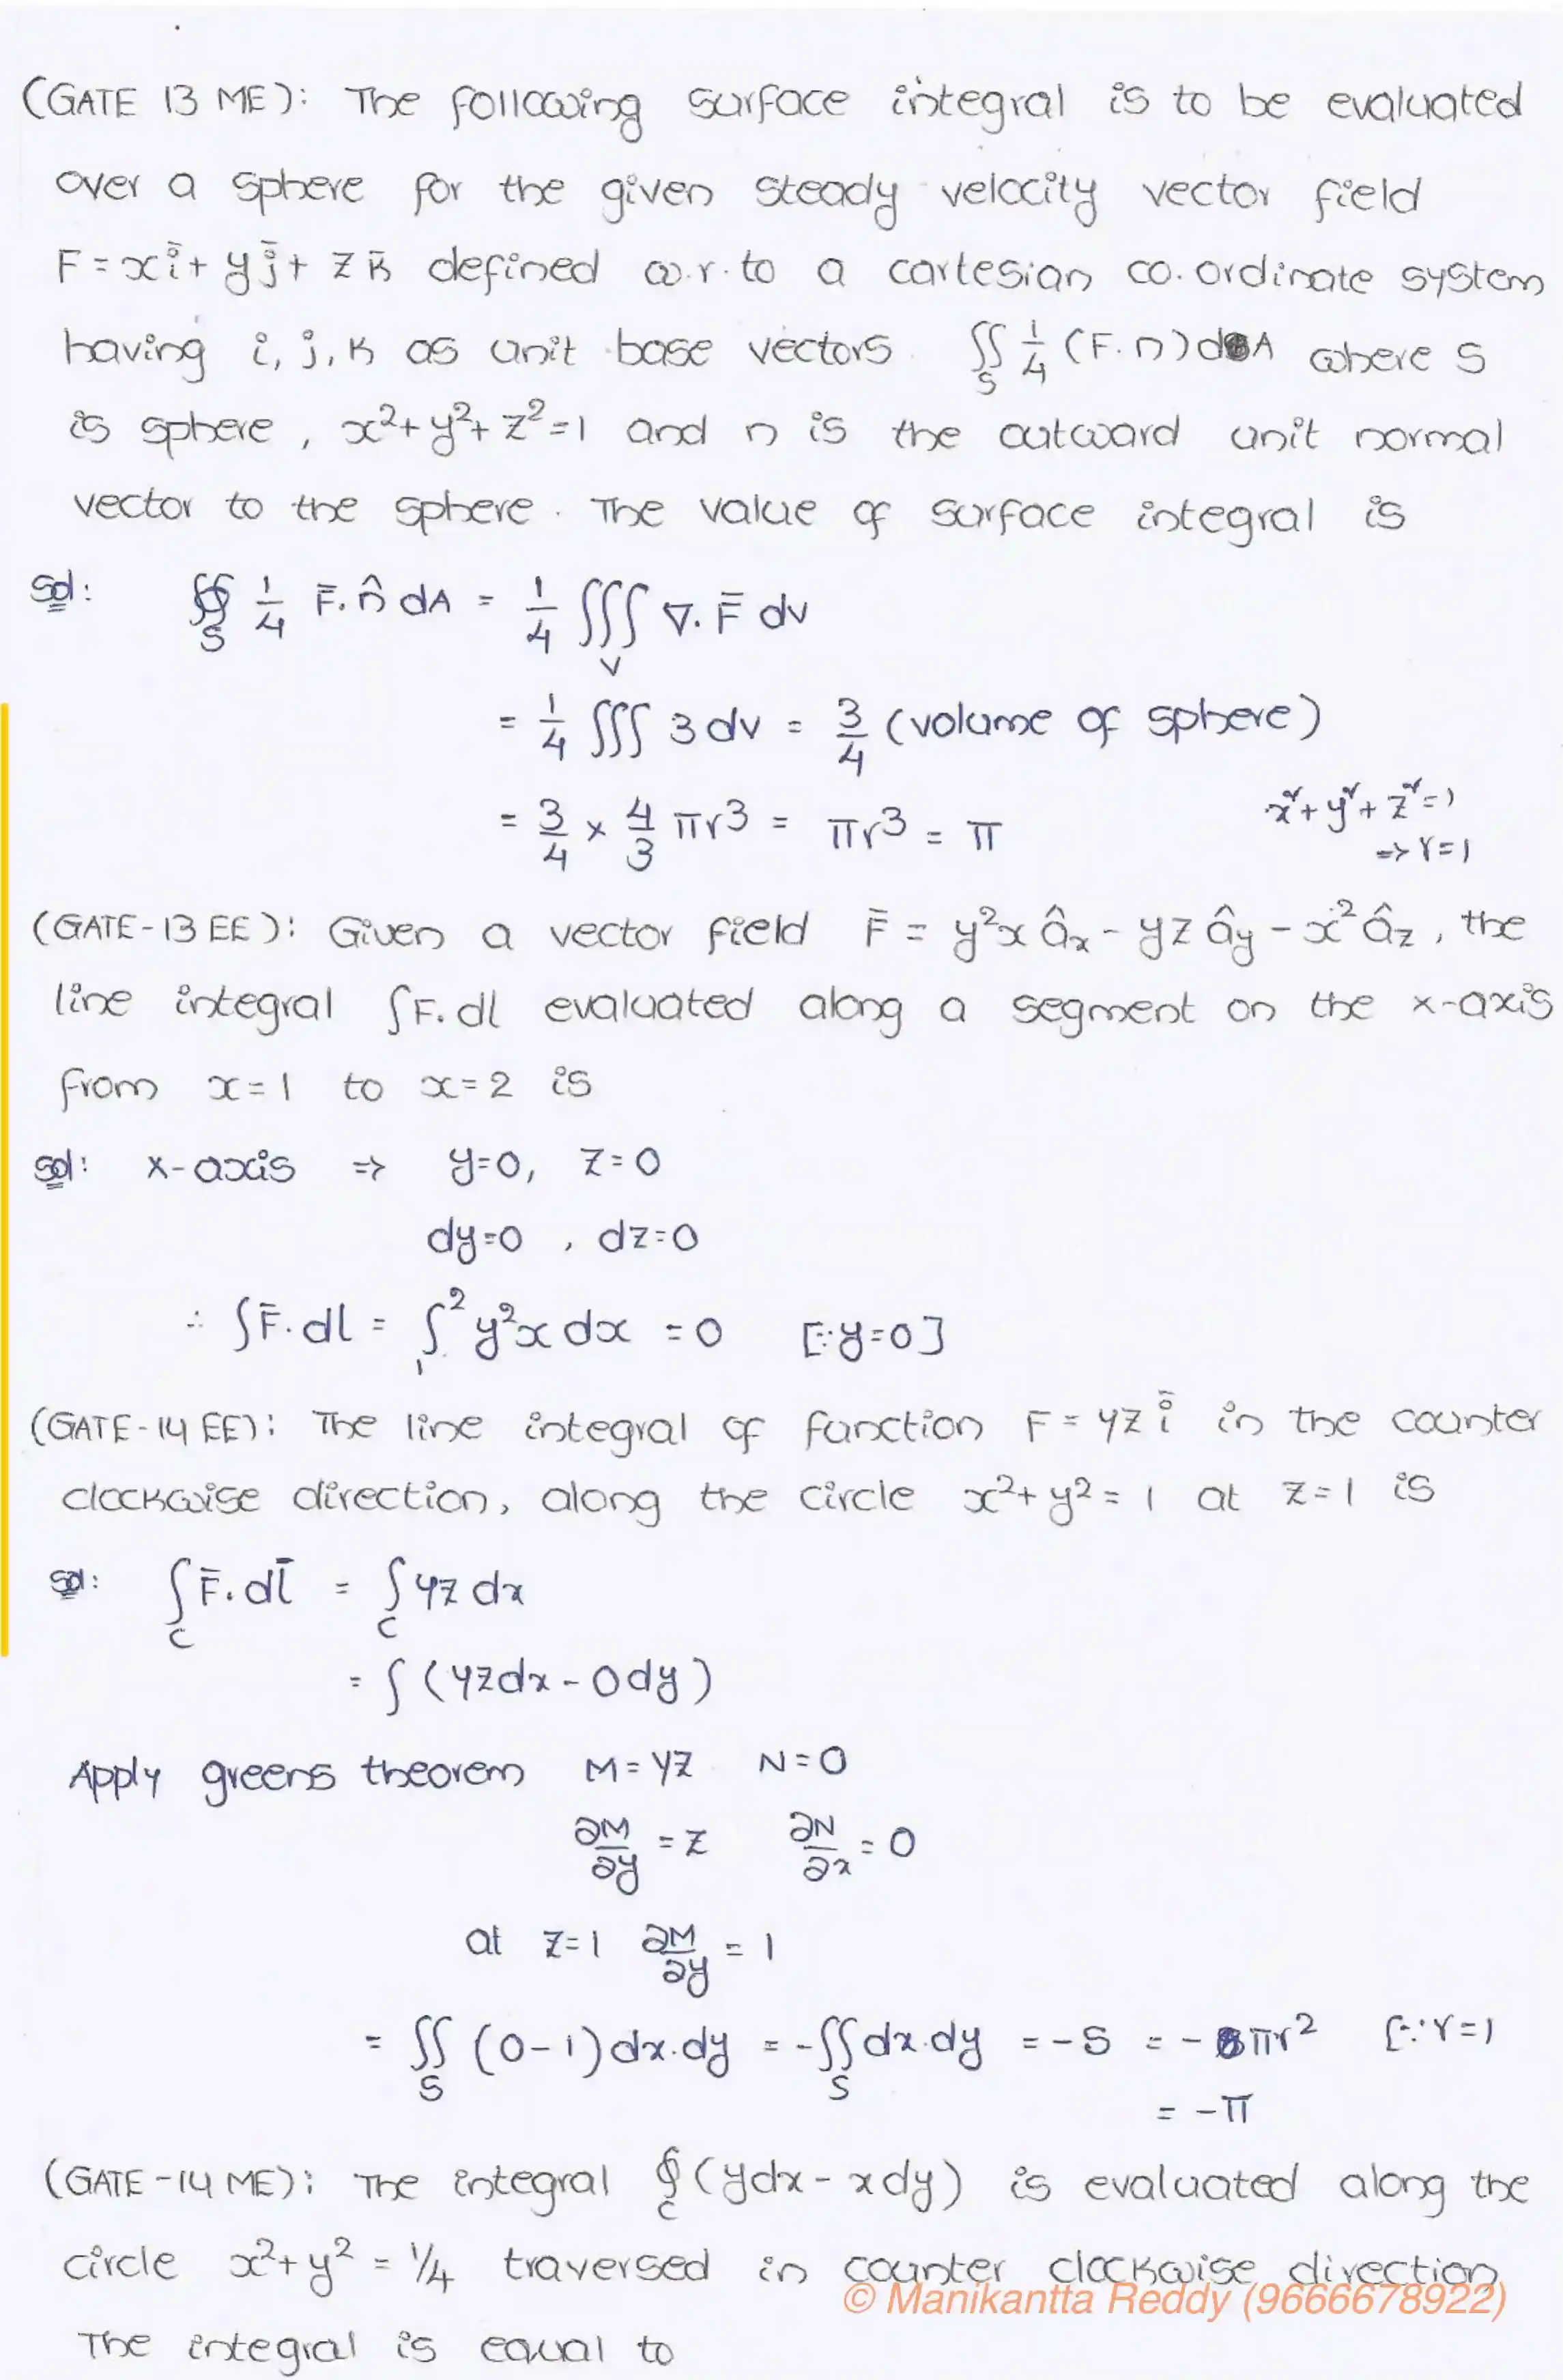 (GATE 13 ME): The following surface integral is to be evaluated
over a sphere for the given steady velocity vector field
F = x i̅ + y j̅ + z k̅ defined w.r.to a cartesian co.ordinate system
having i, j, k as unit base vectors ∬_S 1/4 (F.n) dA where S
is sphere, x²+y²+z²=1 and n is the outward unit normal
vector to the sphere. The value of surface integral is
Sol: ∯_S 1/4 F̅.n̂ dA = 1/4 ∭_V ∇.F̅ dv
= 1/4 ∭ 3 dv = 3/4 (volume of sphere)
= 3/4 × 4/3 πr³ = πr³ = π x²+y²+z²=1
=> r=1
(GATE-13 EE): Given a vector field F̅ = y²x âx - yz ây - x² âz, the
line integral ∫F.dl evaluated along a segment on the x-axis
from x=1 to x=2 is
Sol: x-axis => y=0, z=0
dy=0, dz=0
∴ ∫F̅.dl = ∫₁² y²x dx = 0 [∵y=0]
(GATE-14 EE): The line integral of function F = yz i̅ in the counter
clockwise direction, along the circle x²+y²=1 at z=1 is
Sol: ∫_C F̅.dl̅ = ∫_C yz dx
= ∫(yzdx - 0dy)
Apply greens theorem M=yz N=0
∂M/∂y = z ∂N/∂x = 0
at z=1 ∂M/∂y = 1
= ∬_S (0-1)dx.dy = -∬_S dx.dy = -S = -πr² [∵r=1
= -π
(GATE-14 ME): The integral ∮_C (ydx - xdy) is evaluated along the
circle x²+y² = 1/4 traversed in counter clockwise direction
© Manikantta Reddy (9666678922)
The integral is equal to